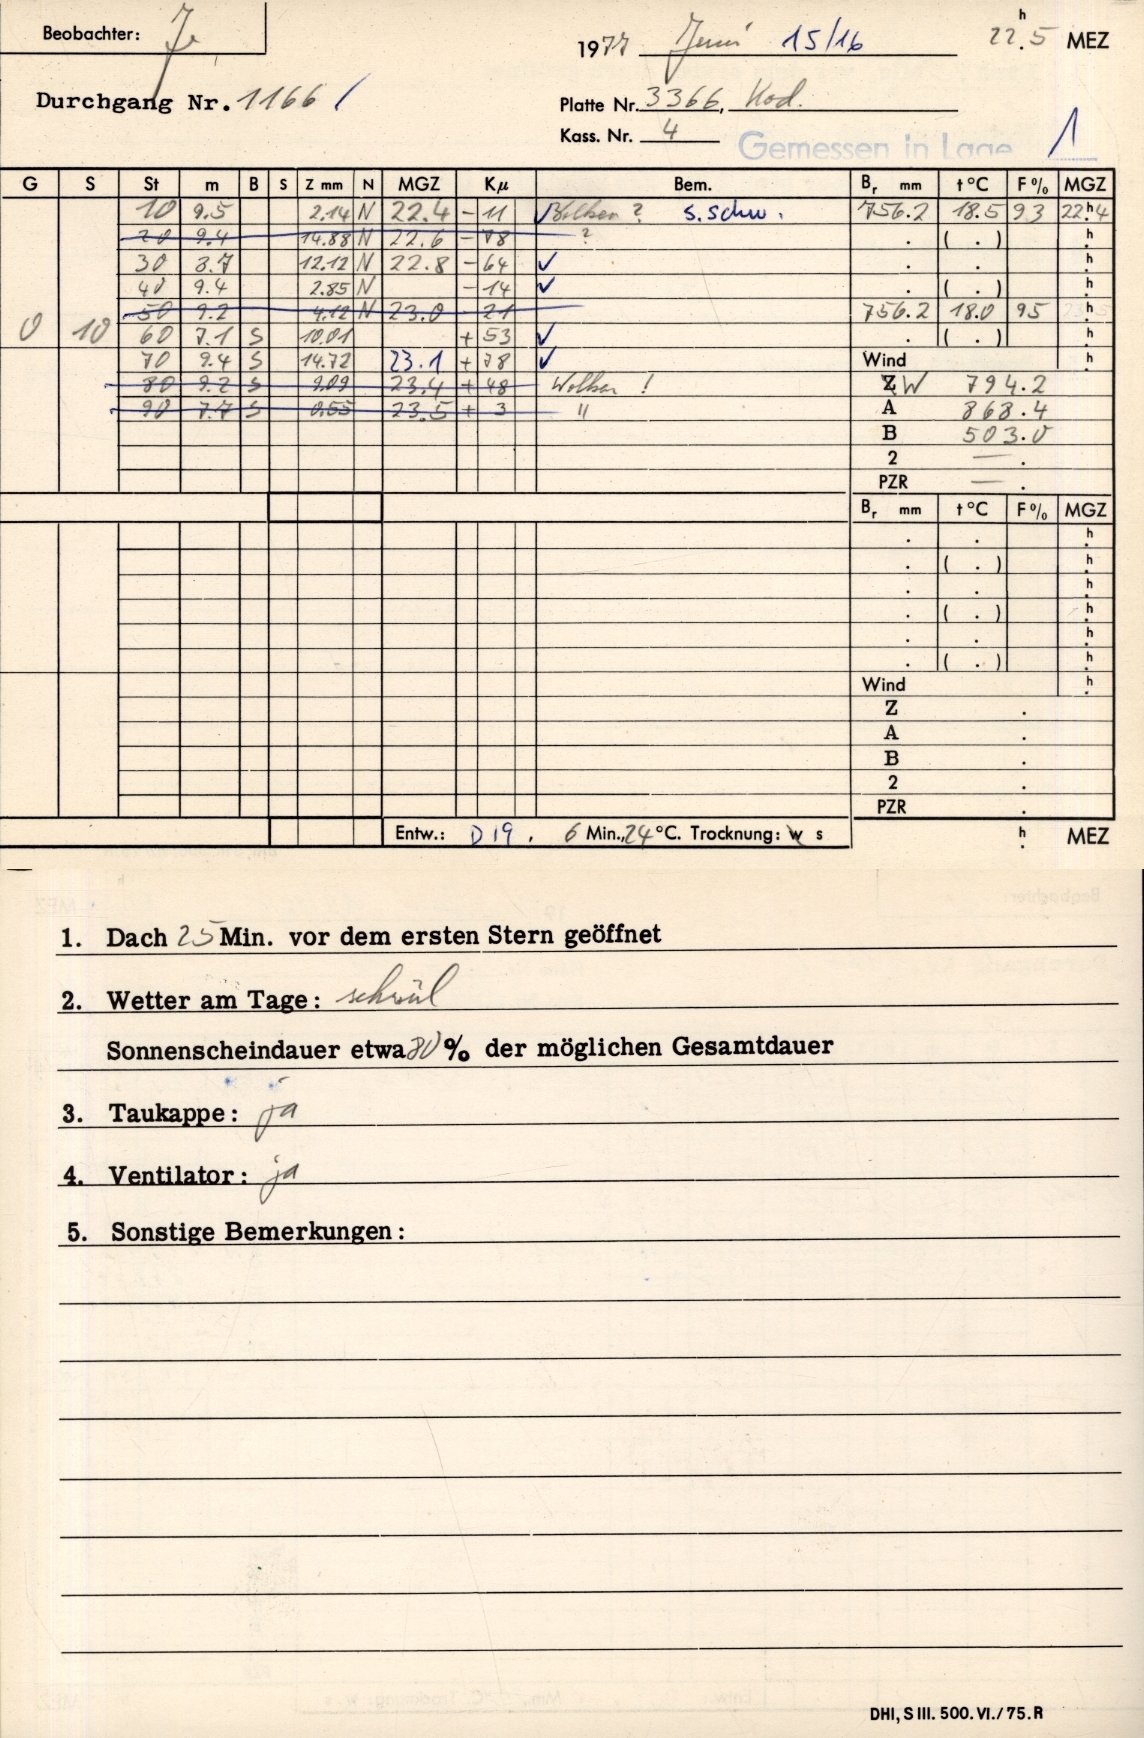 Beobachter: J.
1977 Juni 15/16 22.5 h MEZ
Durchgang Nr. 1166 /
Platte Nr. 3366, Kod.
Kass. Nr. 4
Gemessen in Lage 1
G S St m B S Z mm N MGZ Kμ Bem. Br mm t °C F% MGZ
10 9.5 2.14 N 22.4 - 11 ✓ Wolken ? s. schw. 756.2 18.5 93 22.4 h
20 9.4 14.88 N 22.6 - 78 ? . ( . ) h
30 8.7 12.12 N 22.8 - 64 ✓ . . h
40 9.4 2.85 N - 14 ✓ . ( . ) h
50 9.2 4.12 N 23.0 - 21 756.2 18.0 95 h
0 10 60 7.1 S 10.01 + 53 ✓ . ( . ) h
70 9.4 S 14.72 23.1 + 78 ✓ Wind h
80 9.2 S 9.09 23.4 + 48 Wolken ! Z W 794.2
90 7.7 S 0.55 23.5 + 3 " A 868.4
B 503.0
2 — .
PZR — .
Br mm t °C F% MGZ
. . h
. ( . ) h
. . h
. ( . ) h
. . h
. ( . ) h
Wind h
Z .
A .
B .
2 .
PZR .
Entw.: D19. 6 Min., 24 °C. Trocknung: w s h . MEZ
1. Dach 25 Min. vor dem ersten Stern geöffnet
2. Wetter am Tage: schwül
Sonnenscheindauer etwa 80 % der möglichen Gesamtdauer
3. Taukappe: ja
4. Ventilator: ja
5. Sonstige Bemerkungen:
DHI, S III. 500. VI./75. R